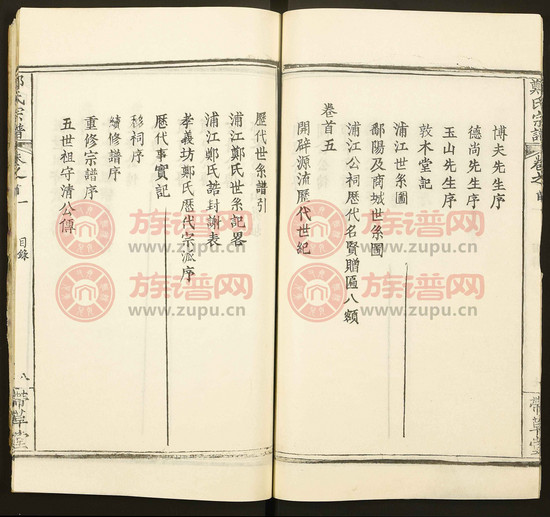 鄭氏宗譜
卷之首
博夫先生序
德尚先生序
玉山先生序
敦木堂記
浦江世系圖
鄱陽及商城世系圖
浦江公祠歷代名賢贈匾八額
卷首五
開辟源流歷代世紀
帶草堂
歷代世系譜引
浦江鄭氏世系記畧
浦江鄭氏誥封謝表
孝義坊鄭氏歷代宗派序
歷代事實記
移祠序
續修譜序
重修宗譜序
五世祖守清公傳
鄭氏宗譜
卷之首一
目錄
八
帶草堂
族谱网
www.zupu.cn
族谱网
www.zupu.cn
族谱网
www.zupu.cn
族谱网
www.zupu.cn